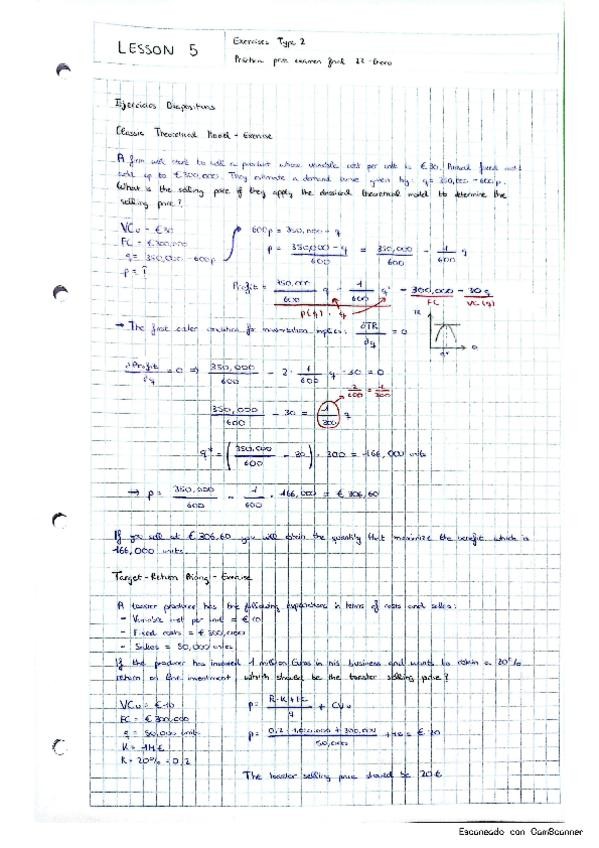 LESSON 5
Exercises Type 2
Práctica para examen final 22-Enero
Ejercicios Diapositivas
Classic Theoretical Model - Exercise
A firm will start to sell a product whose variable cost per unit is € 30. Annual fixed cost
add up to € 300,000. They estimate a demand curve given by: q = 350,000 - 600p.
What is the selling price if they apply the classical theoretical model to determine the
selling price?
VCu = € 30
FC = € 300,000
q = 350,000 - 600p
p = ?
600p = 350,000 - q
p = 350,000 - q / 600 = 350,000 / 600 - 1 / 600 q
Profit = 350,000 / 600 q - 1 / 600 q² - 300,000 - 30q
p(q) · q
FC
VC(q)
→ The first order condition for maximization implies: ∂TR / ∂q = 0
∂Profit / ∂q = 0 ⇒ 350,000 / 600 - 2 · 1 / 600 q - 30 = 0
2 / 600 = 1 / 300
350,000 / 600 - 30 = 1 / 300 q
q* = (350,000 / 600 - 30) · 300 = 166,000 units
→ p = 350,000 / 600 - 1 / 600 · 166,000 = € 306,60
If you sell at € 306,60 you will obtain the quantity that maximize the benefit which is
166,000 units.
Target-Return Pricing - Exercise
A toaster producer has the following expectations in terms of costs and sales:
- Variable cost per unit = € 10
- Fixed costs = € 300,000
- Sales = 50,000 units
If the producer has invested 1 million Euros in his business and wants to obtain a 20%
return on the investment, which should be the toaster selling price?
VCu = € 10
FC = € 300,000
q = 50,000 units
K = 1M €
R = 20% = 0,2
p = R·K + FC / q + CVu
p = 0,2 · 1,000,000 + 300,000 / 50,000 + 10 = € 20
The toaster selling price should be 20€
Escaneado con CamScanner